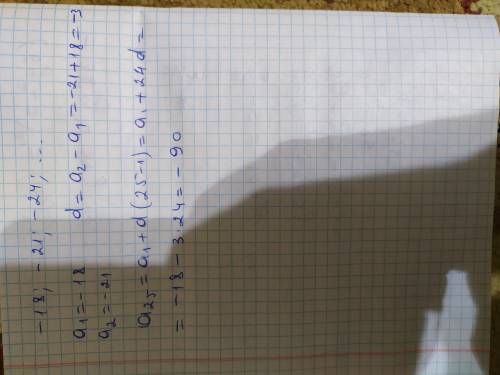 -18; -21; -24; ...
a₁ = -18 d = a₂ - a₁ = -21 + 18 = -3
a₂ = -21
a₂₅ = a₁ + d (25-1) = a₁ + 24d =
= -18 - 3·24 = -90